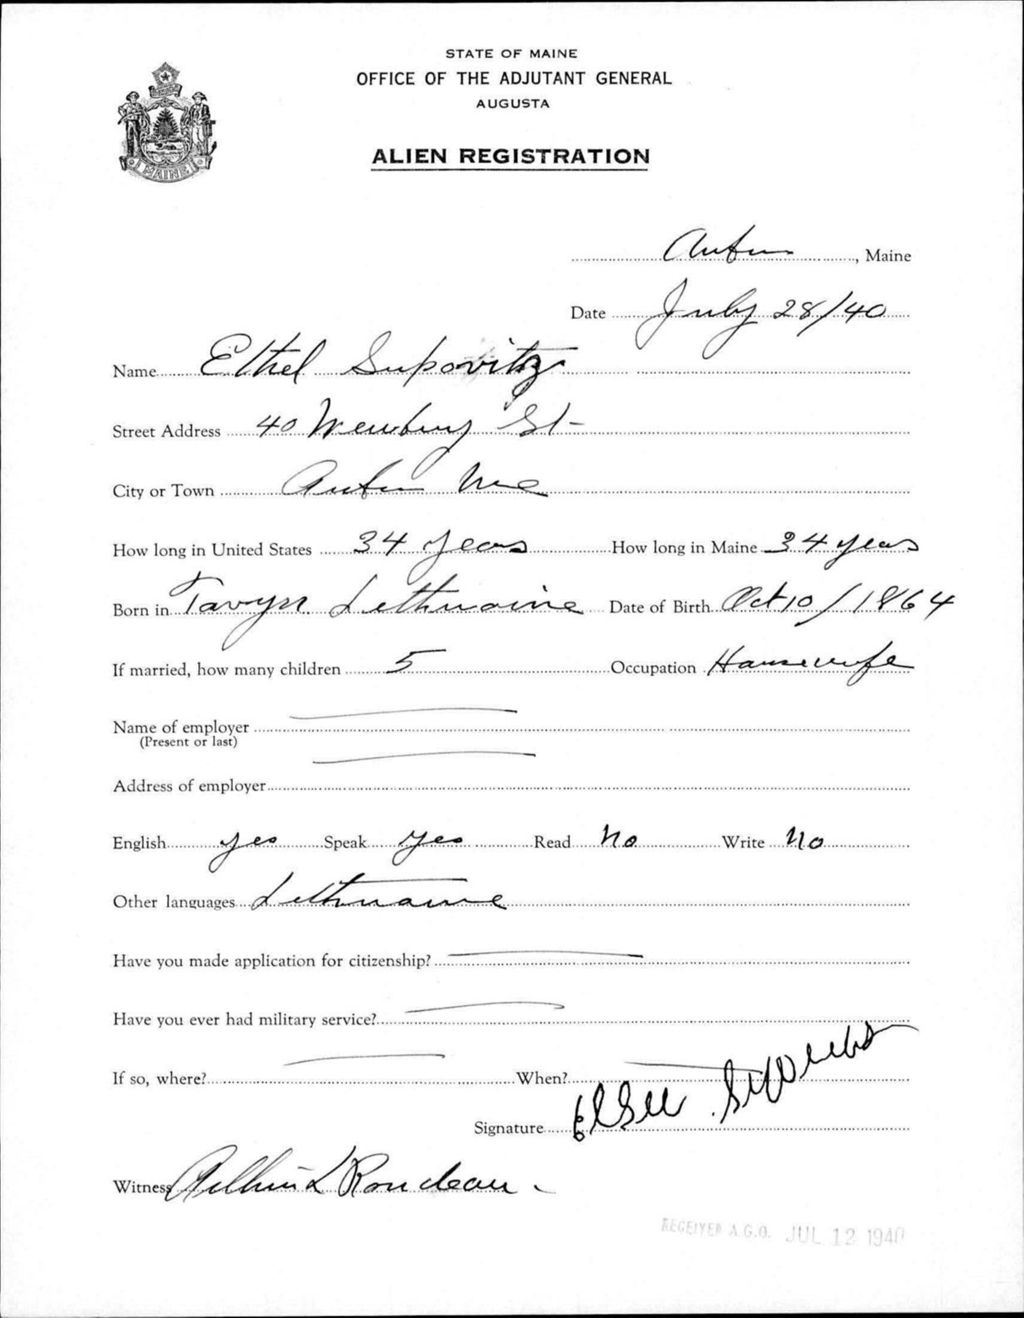 STATE OF MAINE
OFFICE OF THE ADJUTANT GENERAL
AUGUSTA
ALIEN REGISTRATION
MAINE
Auburn, Maine
Date July 28/40
Name Ethel Supovitz
Street Address 40 Newbury St-
City or Town Auburn Me
How long in United States 34 years How long in Maine 34 years
Born in Lethuaine Date of Birth Oct 10/1864
If married, how many children 5 Occupation Housewife
Name of employer
(Present or last)
Address of employer
English yes Speak yes Read No Write No
Other languages Lethuaine
Have you made application for citizenship?
Have you ever had military service?
If so, where? When?
Signature
Witness L Rondeau
RECEIVED A.G.O. JUL 12 1940